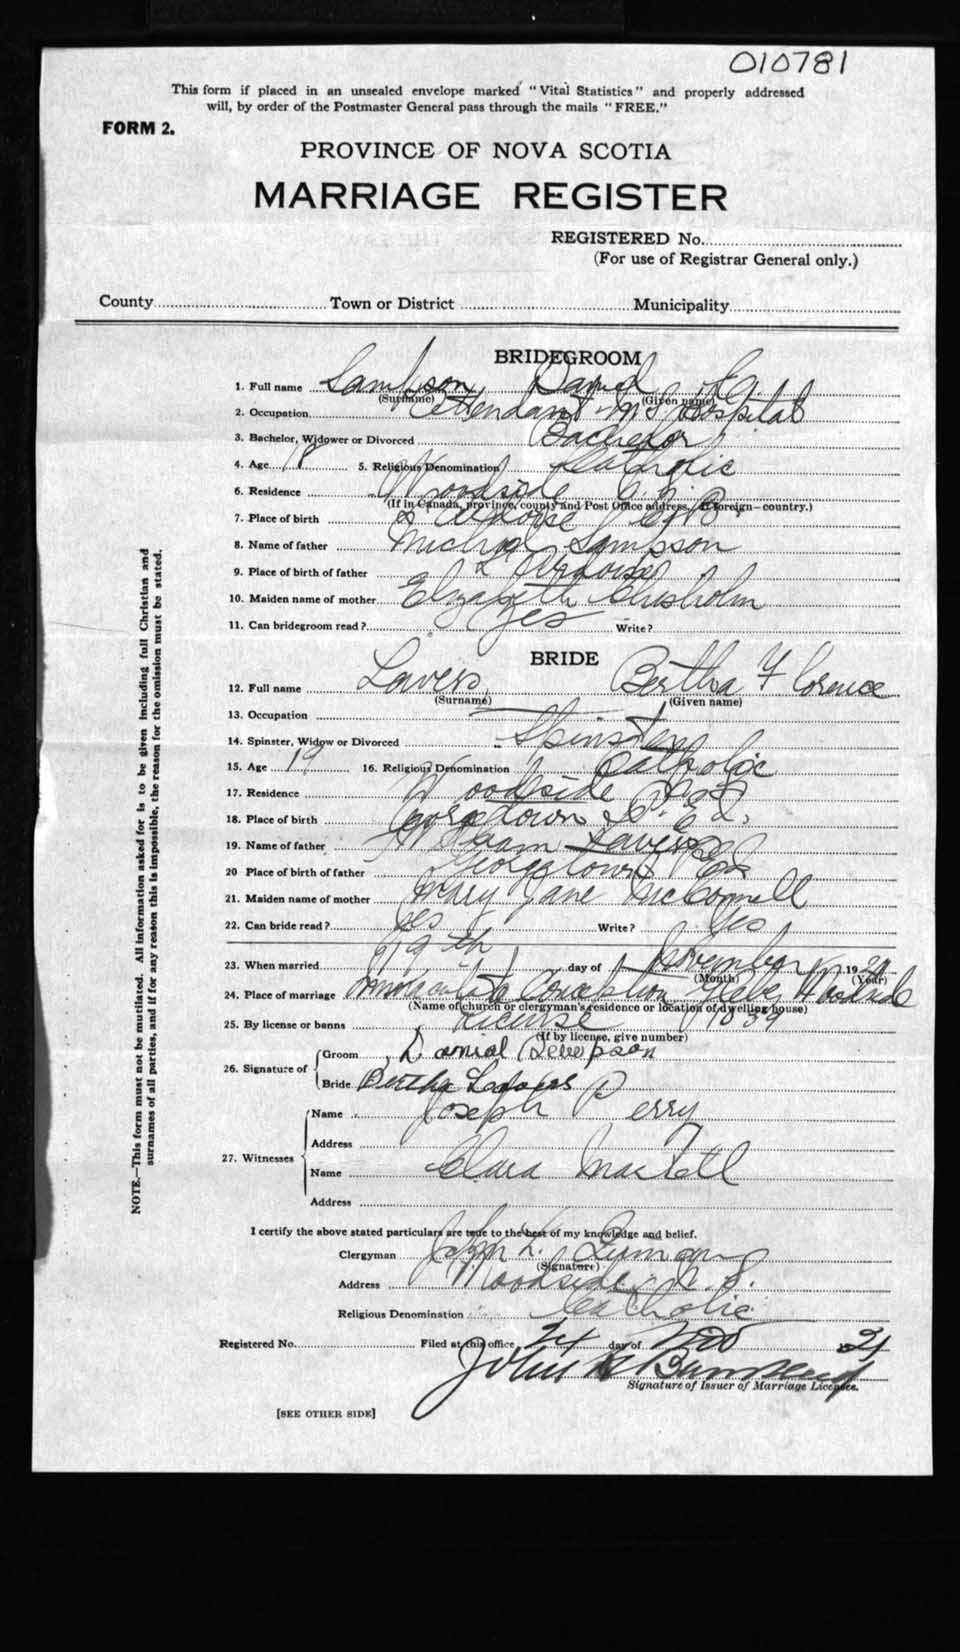 010781
This form if placed in an unsealed envelope marked "Vital Statistics" and properly addressed
will, by order of the Postmaster General pass through the mails "FREE."
FORM 2.
PROVINCE OF NOVA SCOTIA
MARRIAGE REGISTER
REGISTERED No.
(For use of Registrar General only.)
County Town or District Municipality
BRIDEGROOM
1. Full name Sampson Daniel
(Surname) (Given name)
2. Occupation Attendant N S Hospital
3. Bachelor, Widower or Divorced Bachelor
4. Age 18 5. Religious Denomination Catholic
6. Residence Woodside
(If in Canada, province, county and Post Office address, if foreign—country.)
7. Place of birth L'Ardoise C B
8. Name of father Michael Sampson
9. Place of birth of father L'Ardoise
10. Maiden name of mother Elizabeth Chisholm
11. Can bridegroom read? Yes Write?
BRIDE
12. Full name Lavers Bertha Florence
(Surname) (Given name)
13. Occupation
14. Spinster, Widow or Divorced Spinster
15. Age 19 16. Religious Denomination Catholic
17. Residence Woodside N S
18. Place of birth Georgetown P. E. I.
19. Name of father William Lavers
20 Place of birth of father Georgetown P E I
21. Maiden name of mother Mary Jane McConnell
22. Can bride read? Yes Write? Yes
23. When married 19th day of November 19
(Month) (Year)
24. Place of marriage Immaculate Conception Glebe, Woodside
(Name of church or clergyman's residence or location of dwelling house)
25. By license or banns License 1039
(If by license, give number)
26. Signature of
Groom Danial Sampson
Bride Bertha Lavers
27. Witnesses
Name Joseph Perry
Address
Name Clara Martell
Address
I certify the above stated particulars are true to the best of my knowledge and belief.
Clergyman John L.
(Signature)
Address Woodside, N. S.
Religious Denomination Catholic
Registered No. Filed at this office 24 day of Nov
John
Signature of Issuer of Marriage Licenses.
[SEE OTHER SIDE]
NOTE.—This form must not be mutilated. All information asked for is to be given including full Christian and
surnames of all parties, and if for any reason this is impossible, the reason for the omission must be stated.